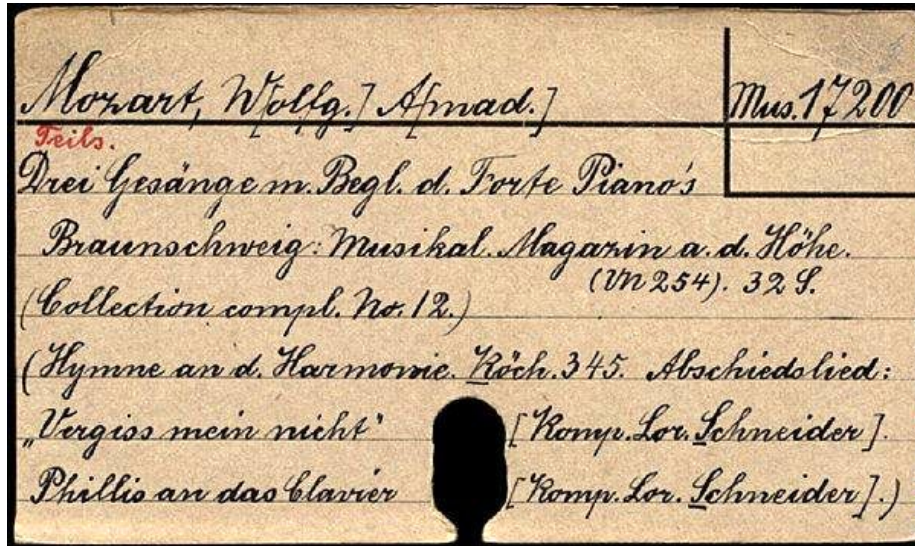 Mozart, W[olfg.] A[mad.]
Mus. 17200
Teils.
Drei Gesänge m. Begl. d. Forte Piano's
Braunschweig: Musikal. Magazin a. d. Höhe.
(VN 254). 32 S.
(Collection compl. No. 12.)
(Hymne an d. Harmonie. Köch. 345. Abschiedslied:
„Vergiss mein nicht" [Komp. Lor. Schneider].
Phillis an das Clavier [Komp. Lor. Schneider].)